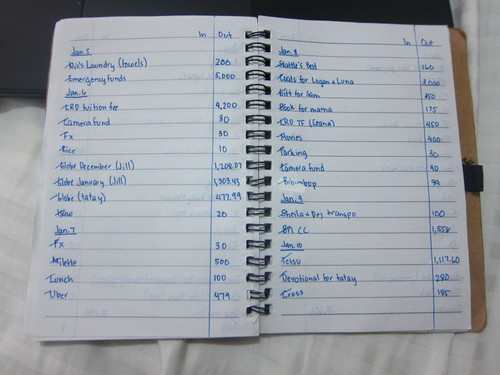 In Out
Jan. 5
Dix's Laundry (towels) 200
Emergency funds 5,000
Jan. 6
IRR tuition fee 4,200
Camera fund 80
Fx 30
Rice 10
Globe December (Jill) 1,206.07
Globe January (Jill) 1,303.43
Globe (tatay) 477.99
20
Jan. 7
Fx 30
500
Lunch 100
Uber 479
In Out
Jan. 8
Seattle's Best 160
Coats for Logan & Luna
Gift for Sam
Book for mama 175
450
Movies 400
Parking 30
Camera fund
Bibimbop 99
Jan. 9
Sheila & Des transpo 100
BPI CC 1,558
Jan. 10
Tetsu 1,117.60
Devotional for tatay 280
Cross 185